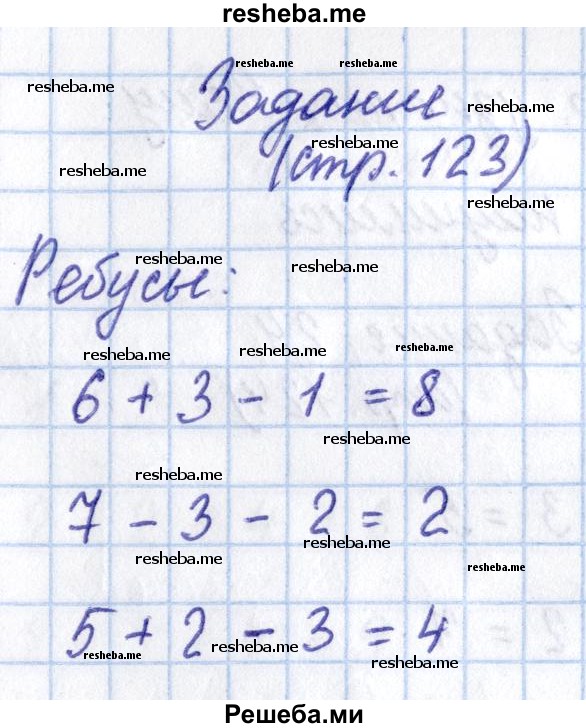 resheba.me
resheba.me resheba.me
resheba.me
Задание
resheba.me
resheba.me
(стр. 123)
resheba.me
resheba.me
Ребусы:
resheba.me
resheba.me
resheba.me resheba.me resheba.me
6 + 3 - 1 = 8
resheba.me
resheba.me
7 - 3 - 2 = 2
resheba.me
resheba.me
resheba.me
5 + 2 - 3 = 4
resheba.me
resheba.me
resheba.me
Решеба.ми